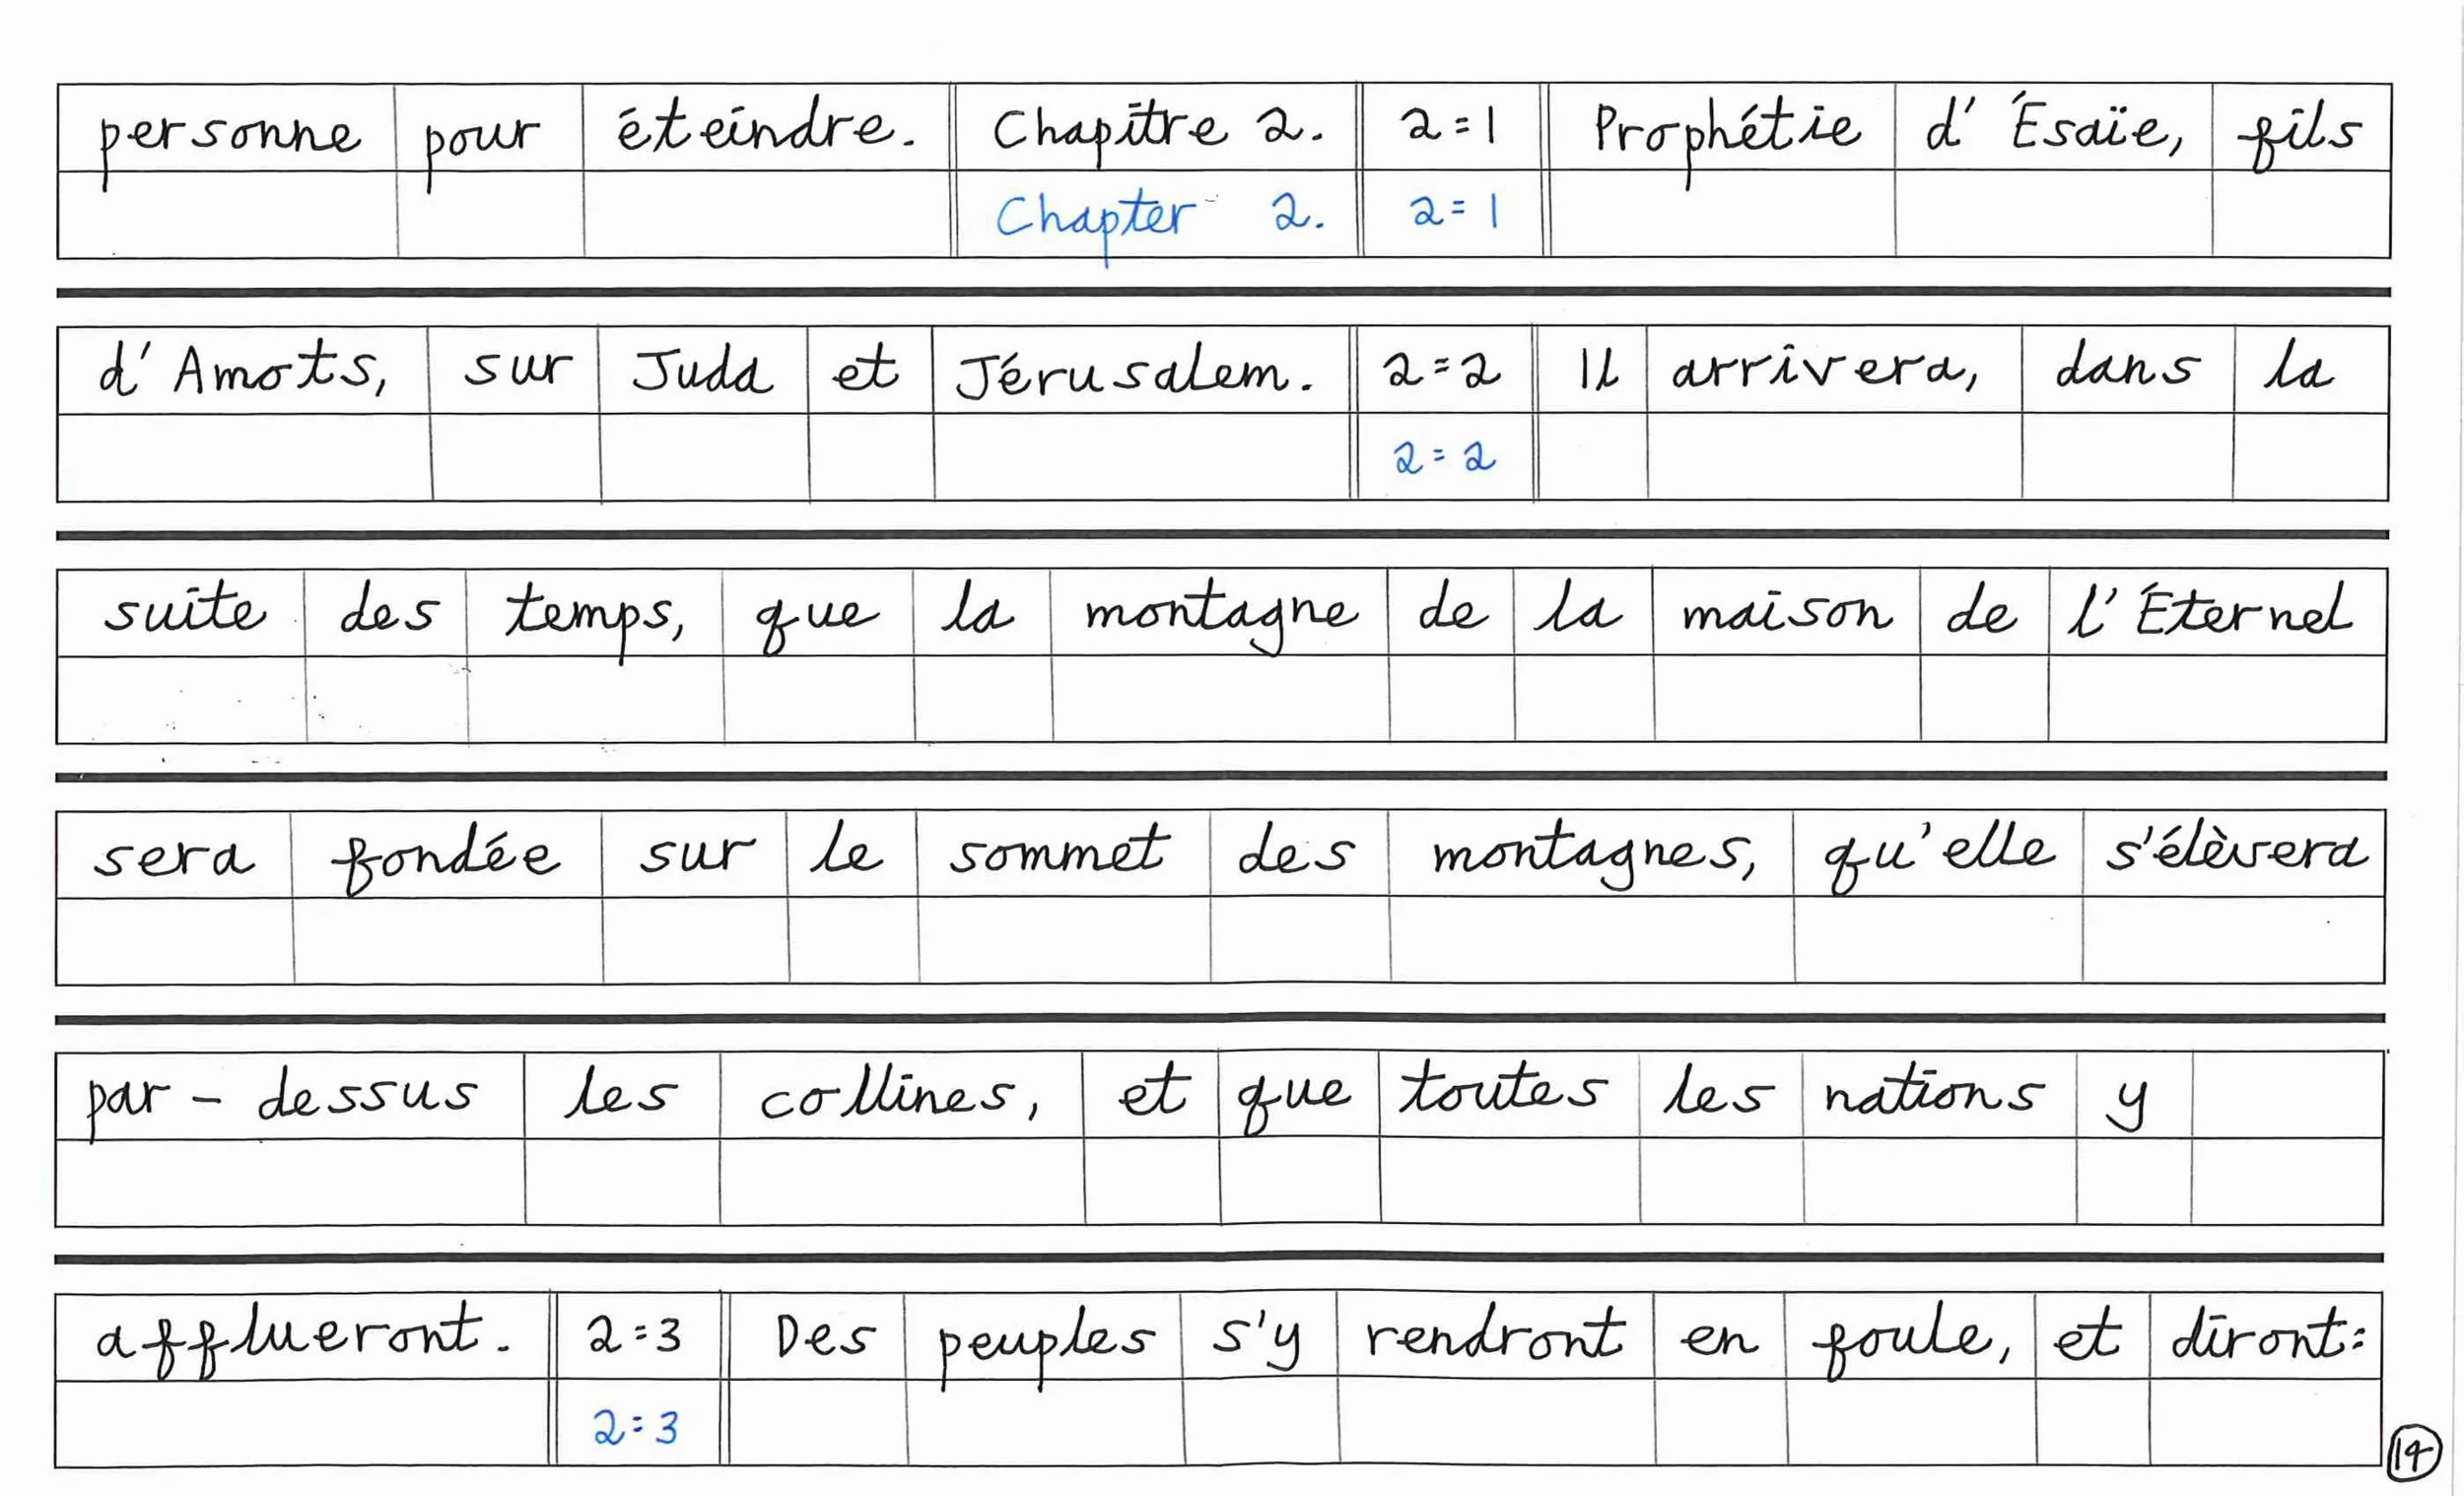 personne pour éteindre. Chapître 2. 2:1 Prophétie d'Ésaïe, fils
Chapter 2. 2:1
d'Amots, sur Juda et Jérusalem. 2:2 Il arrivera, dans la
2:2
suite des temps, que la montagne de la maison de l'Éternel
sera fondée sur le sommet des montagnes, qu'elle s'élèvera
par-dessus les collines, et que toutes les nations y
afflueront. 2:3 Des peuples s'y rendront en foule, et diront:
2:3
14